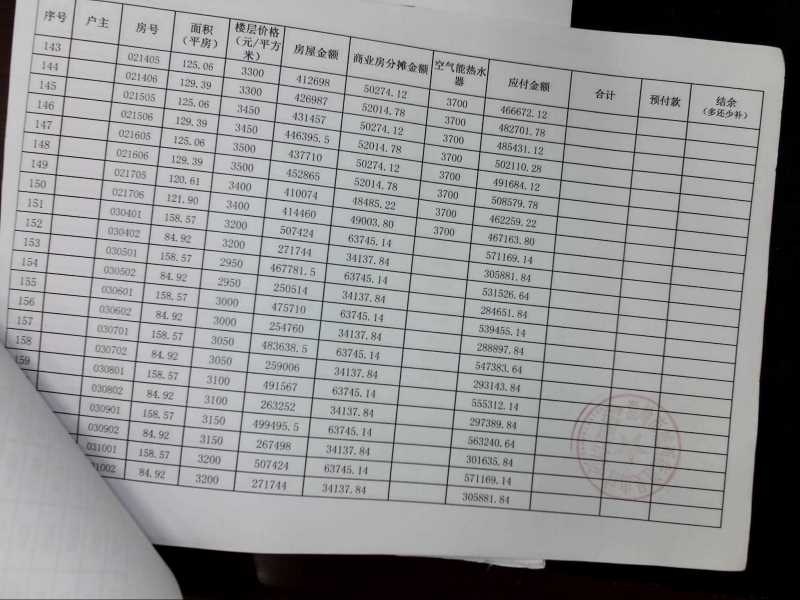 序号 户主 房号 面积（平房） 楼层价格（元/平方米） 房屋金额 商业房分摊金额 空气能热水器 应付金额 合计 预付款 结余（多还少补）
143 021405 125.06 3300 412698 50274.12 3700 466672.12
144 021406 129.39 3300 426987 52014.78 3700 482701.78
145 021505 125.06 3450 431457 50274.12 3700 485431.12
146 021506 129.39 3450 446395.5 52014.78 3700 502110.28
147 021605 125.06 3500 437710 50274.12 3700 491684.12
148 021606 129.39 3500 452865 52014.78 3700 508579.78
149 021705 120.61 3400 410074 48485.22 3700 462259.22
150 021706 121.90 3400 414460 49003.80 3700 467163.80
151 030401 158.57 3200 507424 63745.14 571169.14
152 030402 84.92 3200 271744 34137.84 305881.84
153 030501 158.57 2950 467781.5 63745.14 531526.64
154 030502 84.92 2950 250514 34137.84 284651.84
155 030601 158.57 3000 475710 63745.14 539455.14
156 030602 84.92 3000 254760 34137.84 288897.84
157 030701 158.57 3050 483638.5 63745.14 547383.64
158 030702 84.92 3050 259006 34137.84 293143.84
159 030801 158.57 3100 491567 63745.14 555312.14
030802 84.92 3100 263252 34137.84 297389.84
030901 158.57 3150 499495.5 63745.14 563240.64
030902 84.92 3150 267498 34137.84 301635.84
031001 158.57 3200 507424 63745.14 571169.14
31002 84.92 3200 271744 34137.84 305881.84